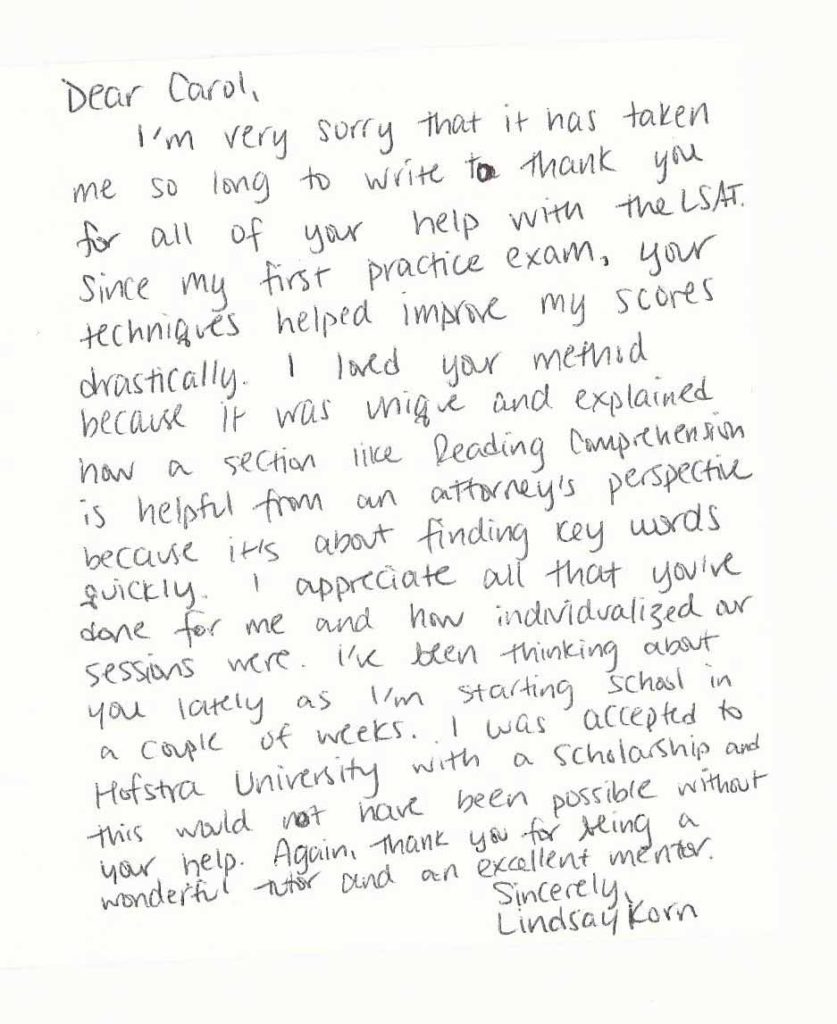 Dear Carol,
I'm very sorry that it has taken
me so long to write to thank you
for all of your help with the LSAT.
Since my first practice exam, your
techniques helped improve my scores
drastically. I loved your method
because it was unique and explained
how a section like Reading Comprehension
is helpful from an attorney's perspective
because it's about finding key words
quickly. I appreciate all that you've
done for me and how individualized our
sessions were. I've been thinking about
you lately as I'm starting school in
a couple of weeks. I was accepted to
Hofstra University with a scholarship and
this would not have been possible without
your help. Again, thank you for being a
wonderful tutor and an excellent mentor.
Sincerely,
Lindsay Korn